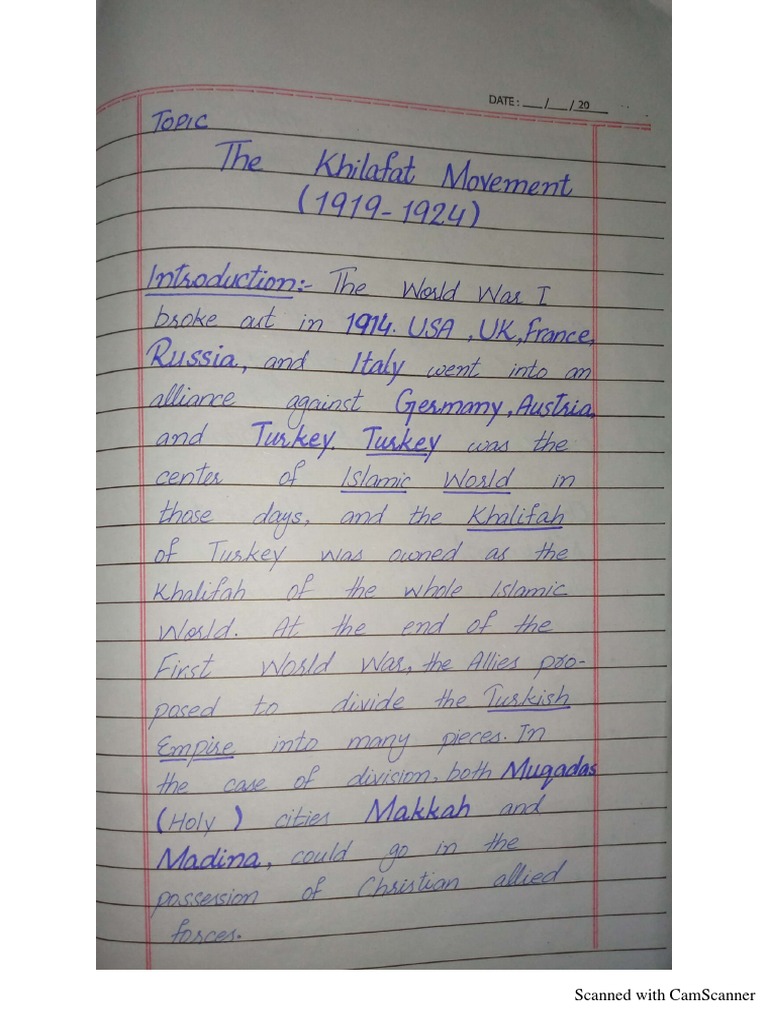 DATE: __/__/20__
TOPIC
The Khilafat Movement
(1919-1924)
Introduction:- The World War I
broke out in 1914. USA, UK, France,
Russia, and Italy went into an
alliance against Germany, Austria,
and Turkey. Turkey was the
center of Islamic World in
those days, and the Khalifah
of Turkey was owned as the
Khalifah of the whole Islamic
World. At the end of the
First World War, the Allies pro-
posed to divide the Turkish
Empire into many pieces. In
the case of division, both Muqadas
(Holy) cities Makkah and
Madina, could go in the
possession of Christian allied
forces.
Scanned with CamScanner